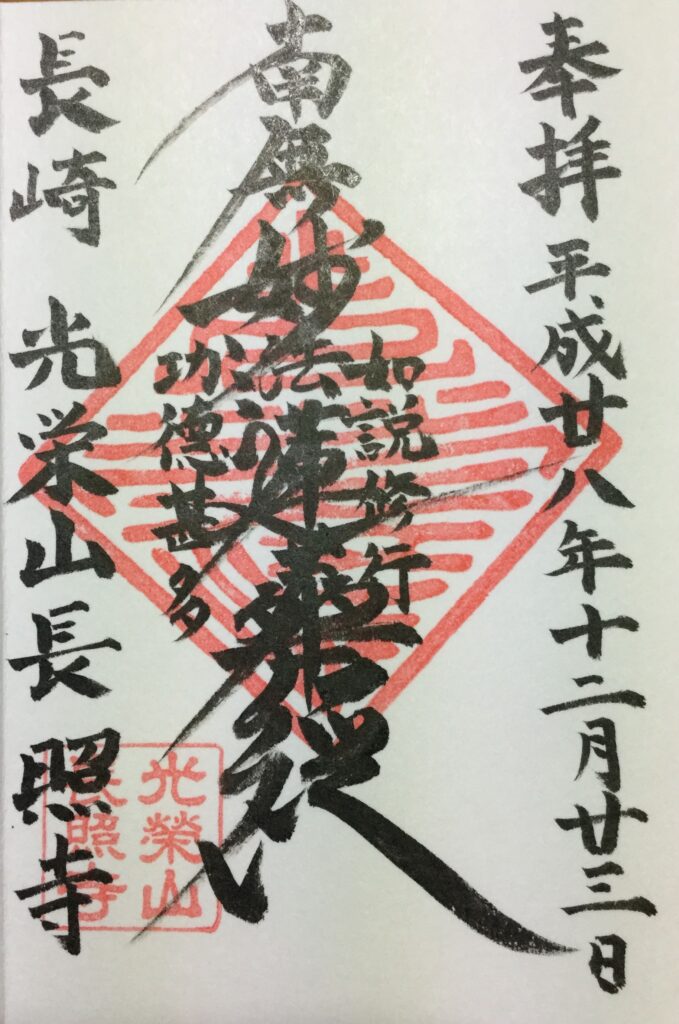 奉拝 平成廿八年十二月廿三日
如説修行
南無妙法蓮華経
功徳甚多
長崎 光栄山長照寺
光榮山
長照寺